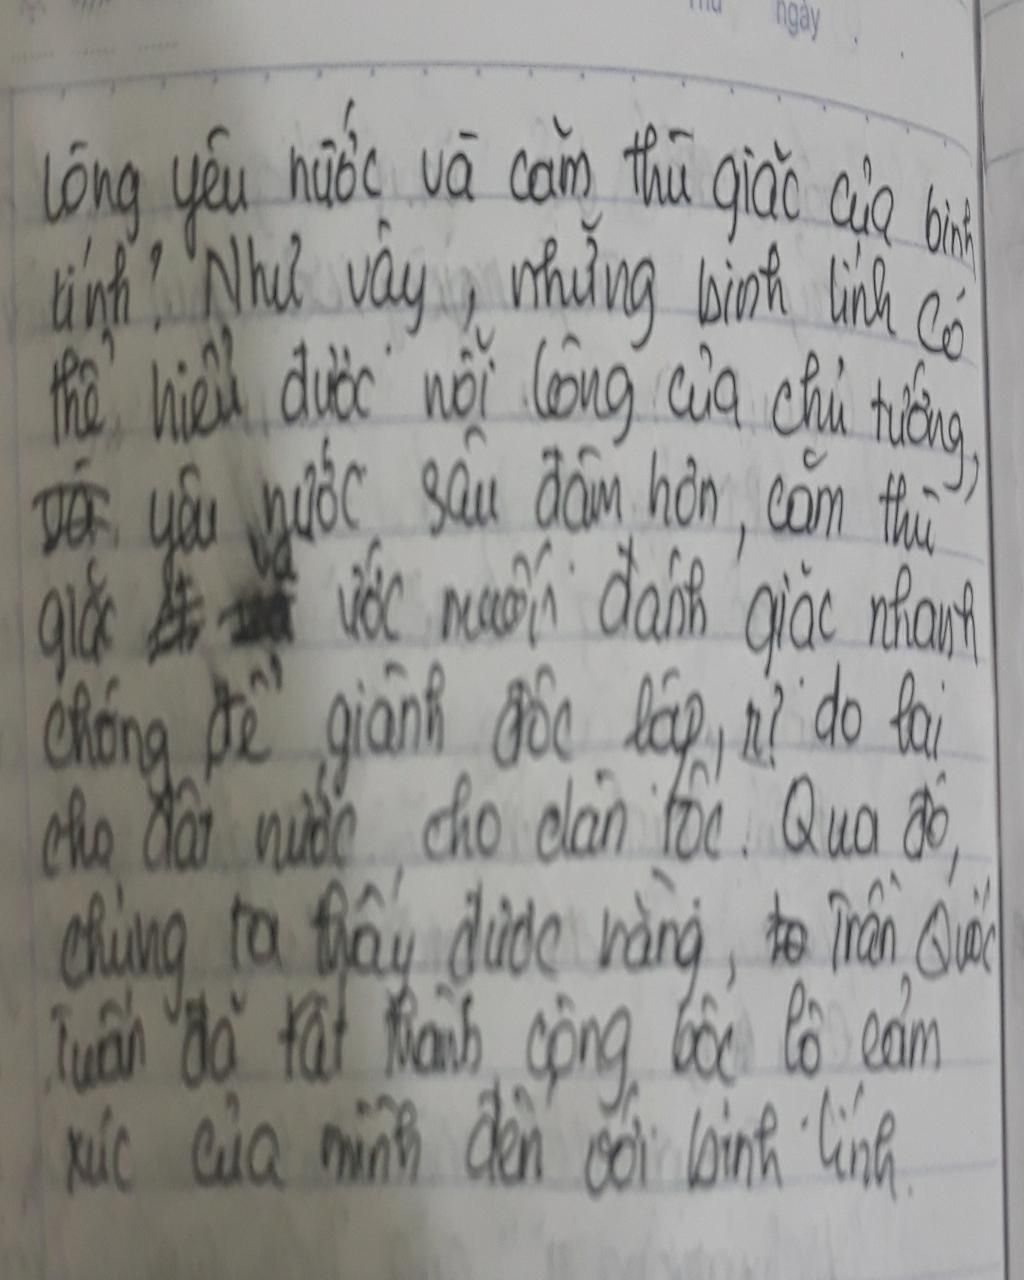 ngày
lòng yêu nước và căm thù giặc của binh
lính? Như vậy, những binh lính có
thể hiểu được nỗi lòng của chủ tướng,
yêu nước sâu đậm hơn, căm thù
giặc và ước muốn đánh giặc nhanh
chóng để giành độc lập, tự do lại
cho đất nước, cho dân tộc. Qua đó,
chúng ta thấy được rằng, Trần Quốc
Tuấn đã rất thành công bộc lộ cảm
xúc của mình đến với binh lính.